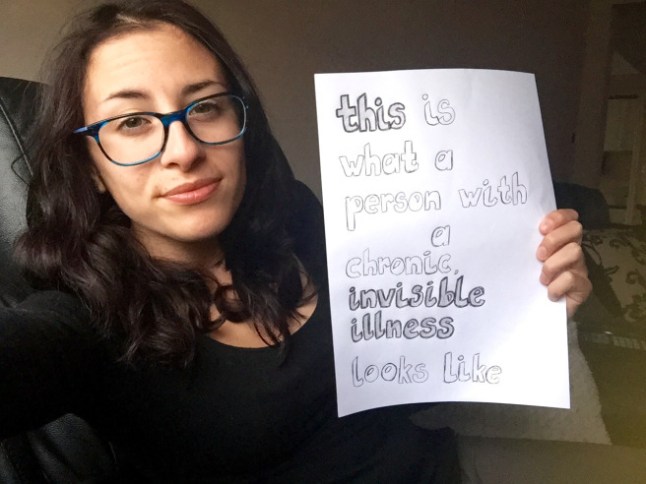 this is
what a
person with
a
chronic,
invisible
illness
looks like